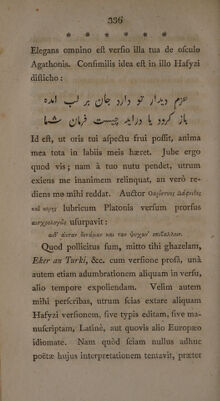 336
Elegans omnino est versio illa tua de osculo
Agathonis. Consimilis idea est in illo Hafyzi
disticho:
عزم دیدار تو دارد جان بر لب امده
باز گردد یا دراید چیست فرمان شما
Id est, ut oris tui aspectu frui possit, anima
mea tota in labiis meis hæret. Jube ergo
quod vis; nam à tuo nutu pendet, utrum
exiens me inanimem relinquat, an verò re-
diens me mihi reddat. Auctor
lubricum Platonis versum prorsus
usurpavit:
Quod pollicitus sum, mitto tibi ghazelam,
Eker an Turki, &c. cum versione prosâ, unà
autem etiam adumbrationem aliquam in versu,
alio tempore expoliendam. Velim autem
mihi perscribas, utrum scias extare aliquam
Hafyzi versionem, sive typis editam, sive ma-
nuscriptam, Latinè, aut quovis alio Europæo
idiomate. Nam quòd sciam nullus adhuc
poëtæ hujus interpretationem tentavit, præter